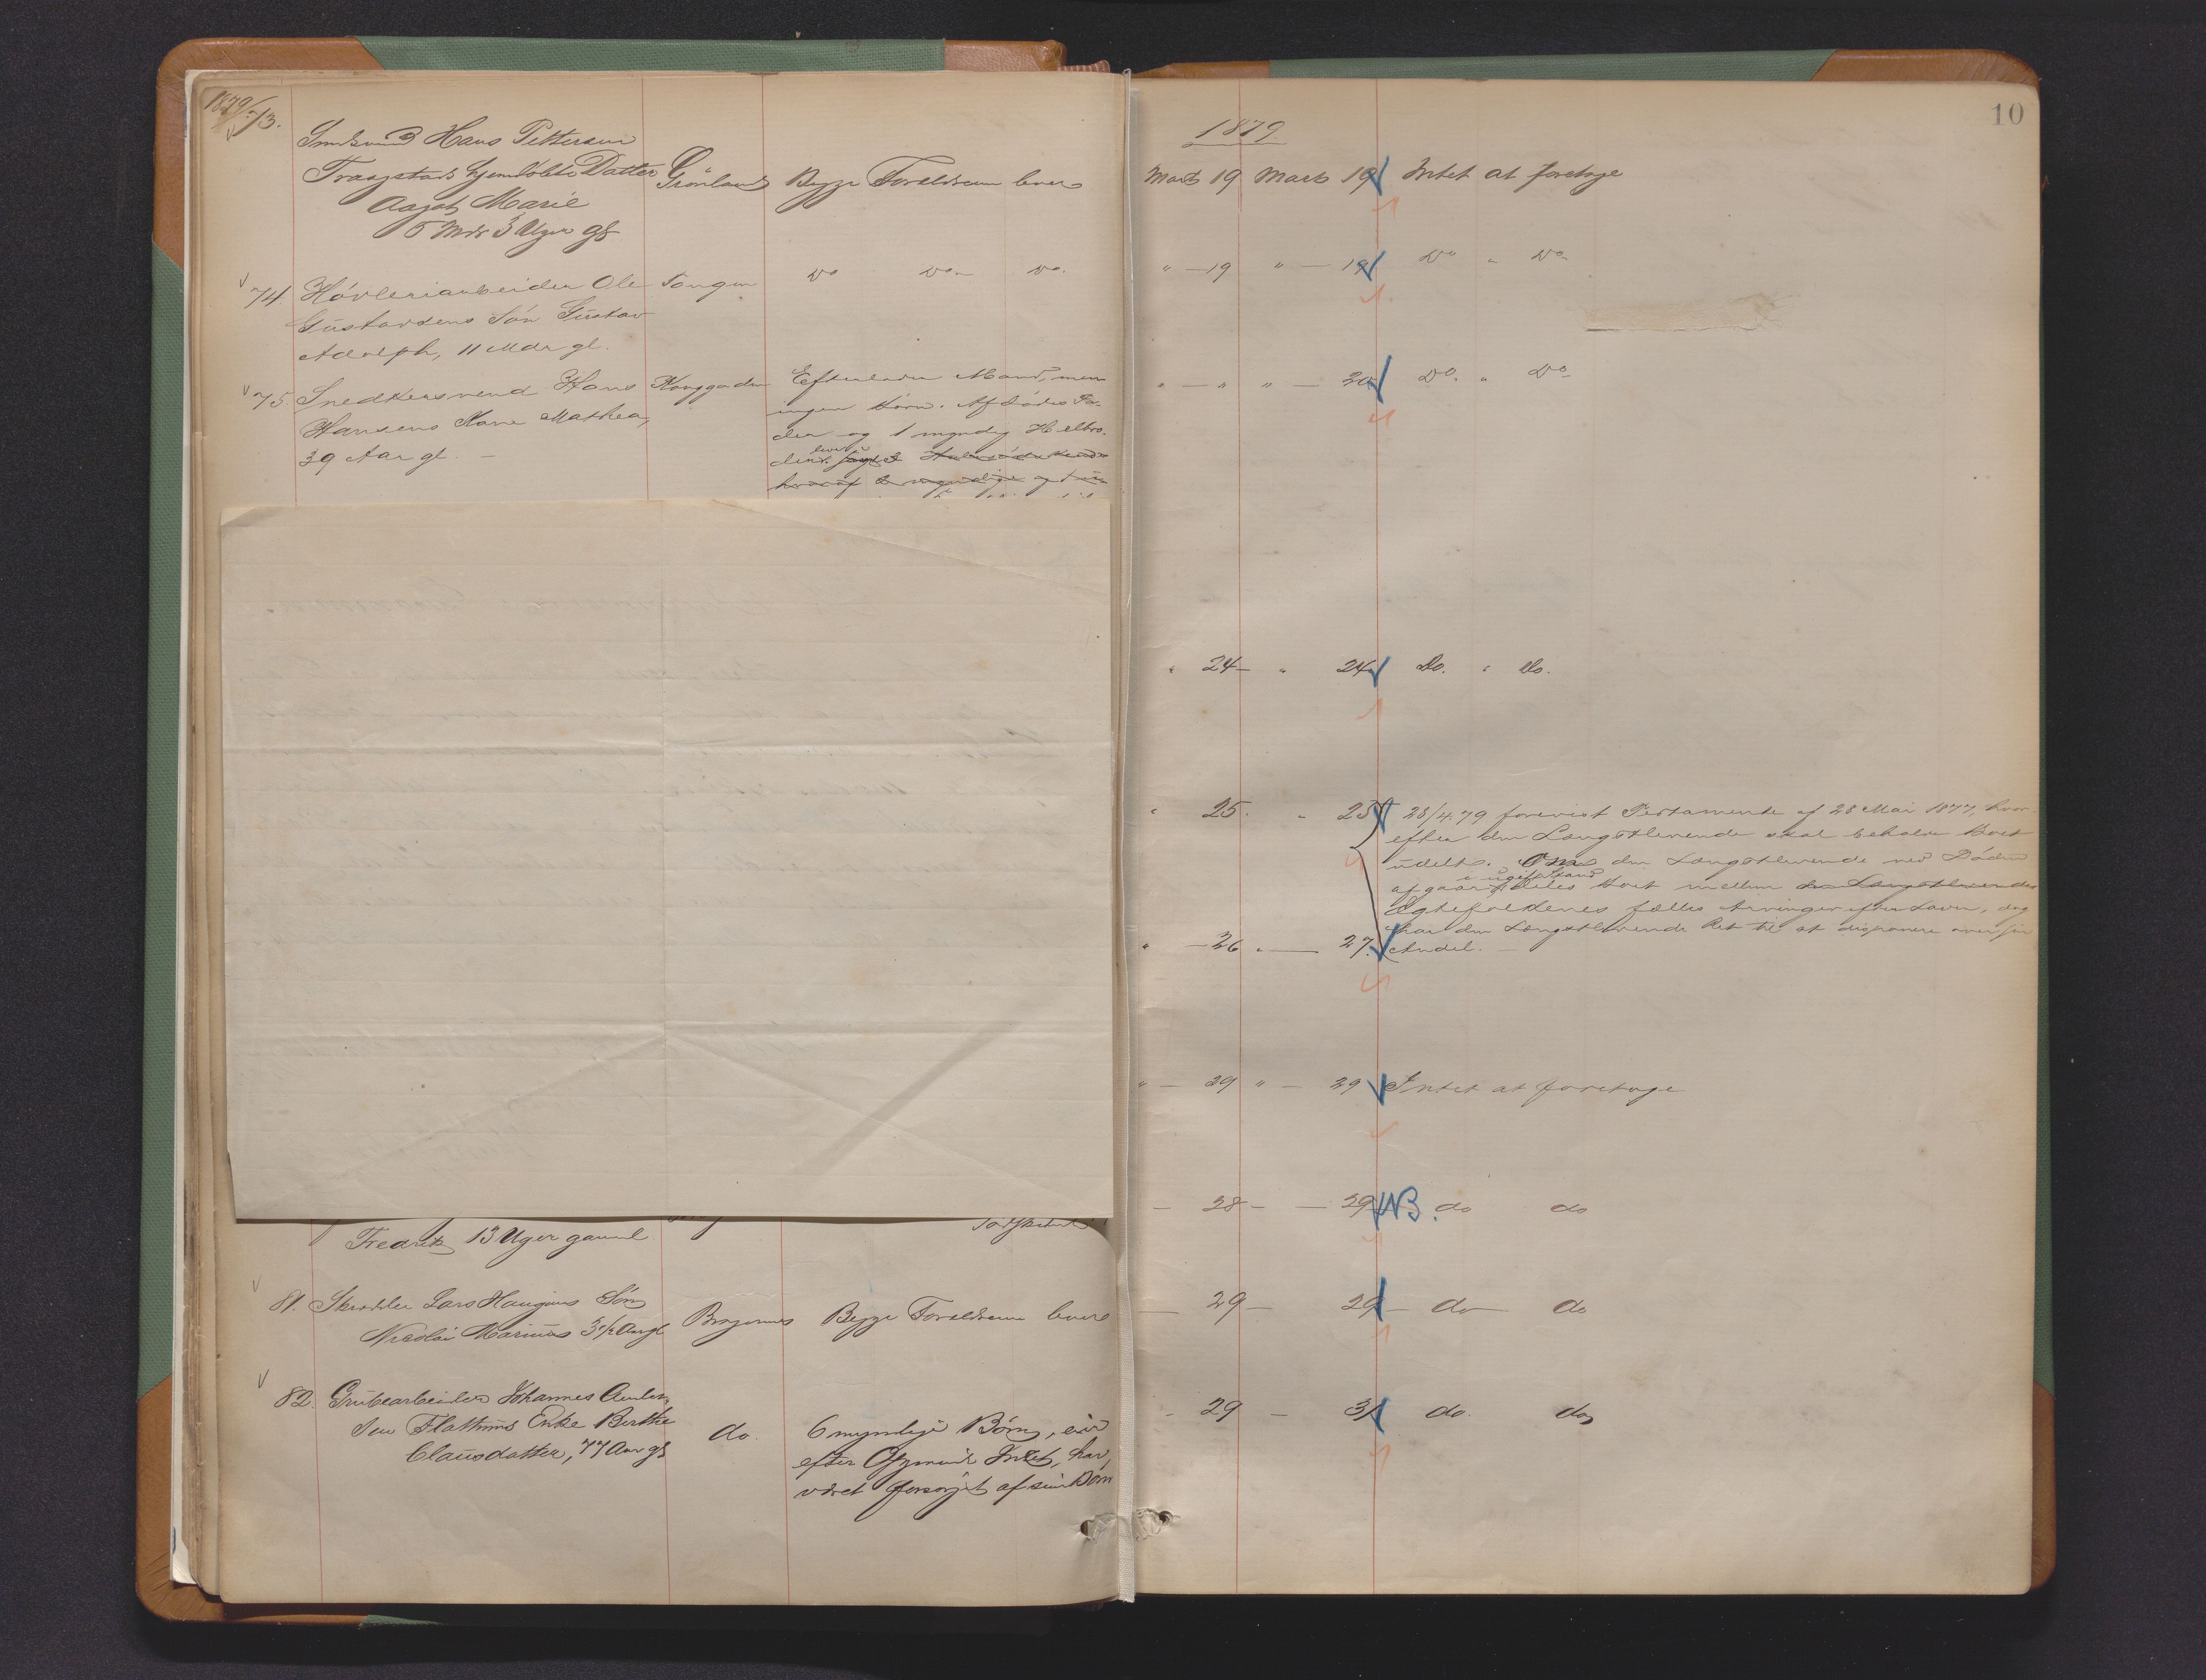 1879/73.
Smedsvend Hans Pettersen
Traagstads hjemdøbte Datter Grønland Begge Forældrene lever
Aagot Marie
5 Mdr 3 Uger gl
74. Høvleriarbeider Ole Tangen Do Do Do.
Gustavsens Søn Gustav
Adolph, 11 Mdr gl.
75. Snedkersvend Hans Konggaden Efterlader Mand, men
Hansens Kone Mathea, ingen Børn. Afdødes Fa-
39 Aar gl. – der og 1 myndig Helbro-
der lever
hvoraf myndige og
Fredrik 13 Uger gammel
81. Skrædder Lars Haugens Søn
Nicolai Marinus 3 1/2 Aar gl Bragernes Begge Forældrene lever
82. Grubearbeider Johannes Ander-
sen Flattums Enke Berthe do. 6 myndige Børn, eier
Clausdatter, 77 Aar gl efter Intet, har
været forsørget af sine Børn
10
1879
Marts 19 Marts 19 Intet at foretage
" – 19 " – 19 Do " Do
" – " " – 20 Do. " Do
" 24 – " 24 Do. " Do.
" 25. " 25 28/4.79 forevist Testamente af 28 Mai 1877, hvor-
efter den Længstlevende skal beholde Boet
udelt. Om den Længstlevende ved Døden
i ugift Stand
afgaar deles Boet mellem den Længstlevendes
Egtefolkenes fælles Arvinger efter Loven, dog
har den Længstlevende Ret til at disponere over sin
" – 26 " – 27. Andel. –
" – 29 " – 29 Intet at foretage
– 28 – – 29 NB. do do
– 29 – 29 – do do
– 29 – 31 do. do